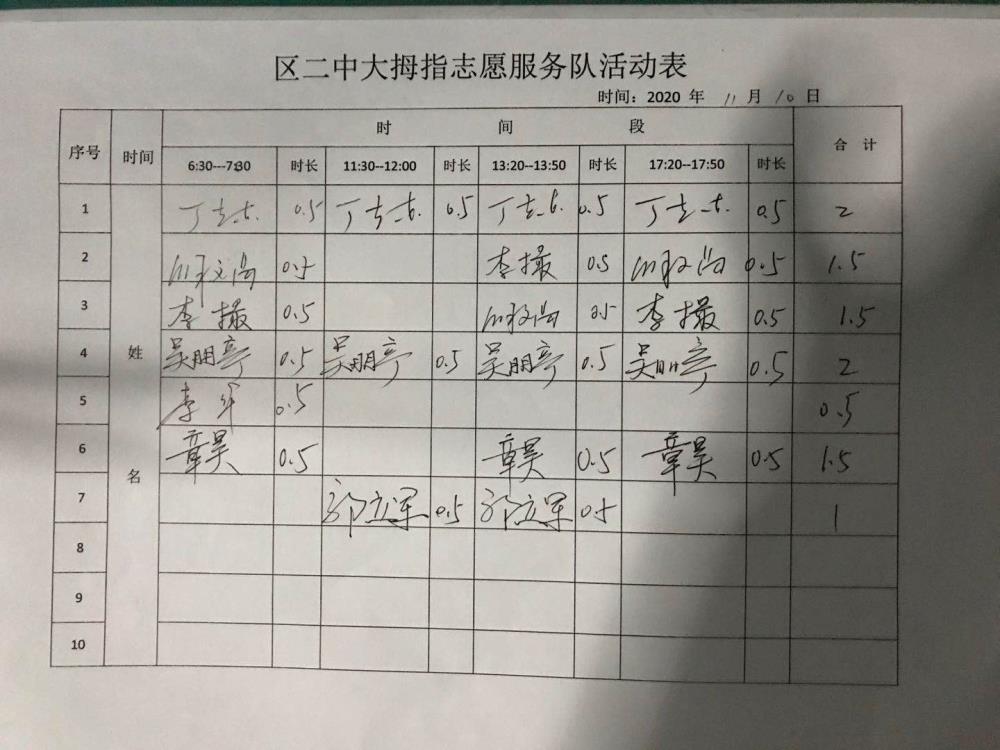 区二中大拇指志愿服务队活动表
时间：2020 年 11 月 10 日
序号 时间 时 间 段 合 计
6:30---7:30 时长 11:30--12:00 时长 13:20--13:50 时长 17:20--17:50 时长
姓 名
1 0.5 0.5 0.5 0.5 2
2 0.5 李撮 0.5 0.5 1.5
3 李撮 0.5 0.5 李撮 0.5 1.5
4 吴朋亭 0.5 吴朋亭 0.5 吴朋亭 0.5 吴朋亭 0.5 2
5 李军 0.5 0.5
6 章昊 0.5 章昊 0.5 章昊 0.5 1.5
7 郭立军 0.5 郭立军 0.5 1
8
9
10